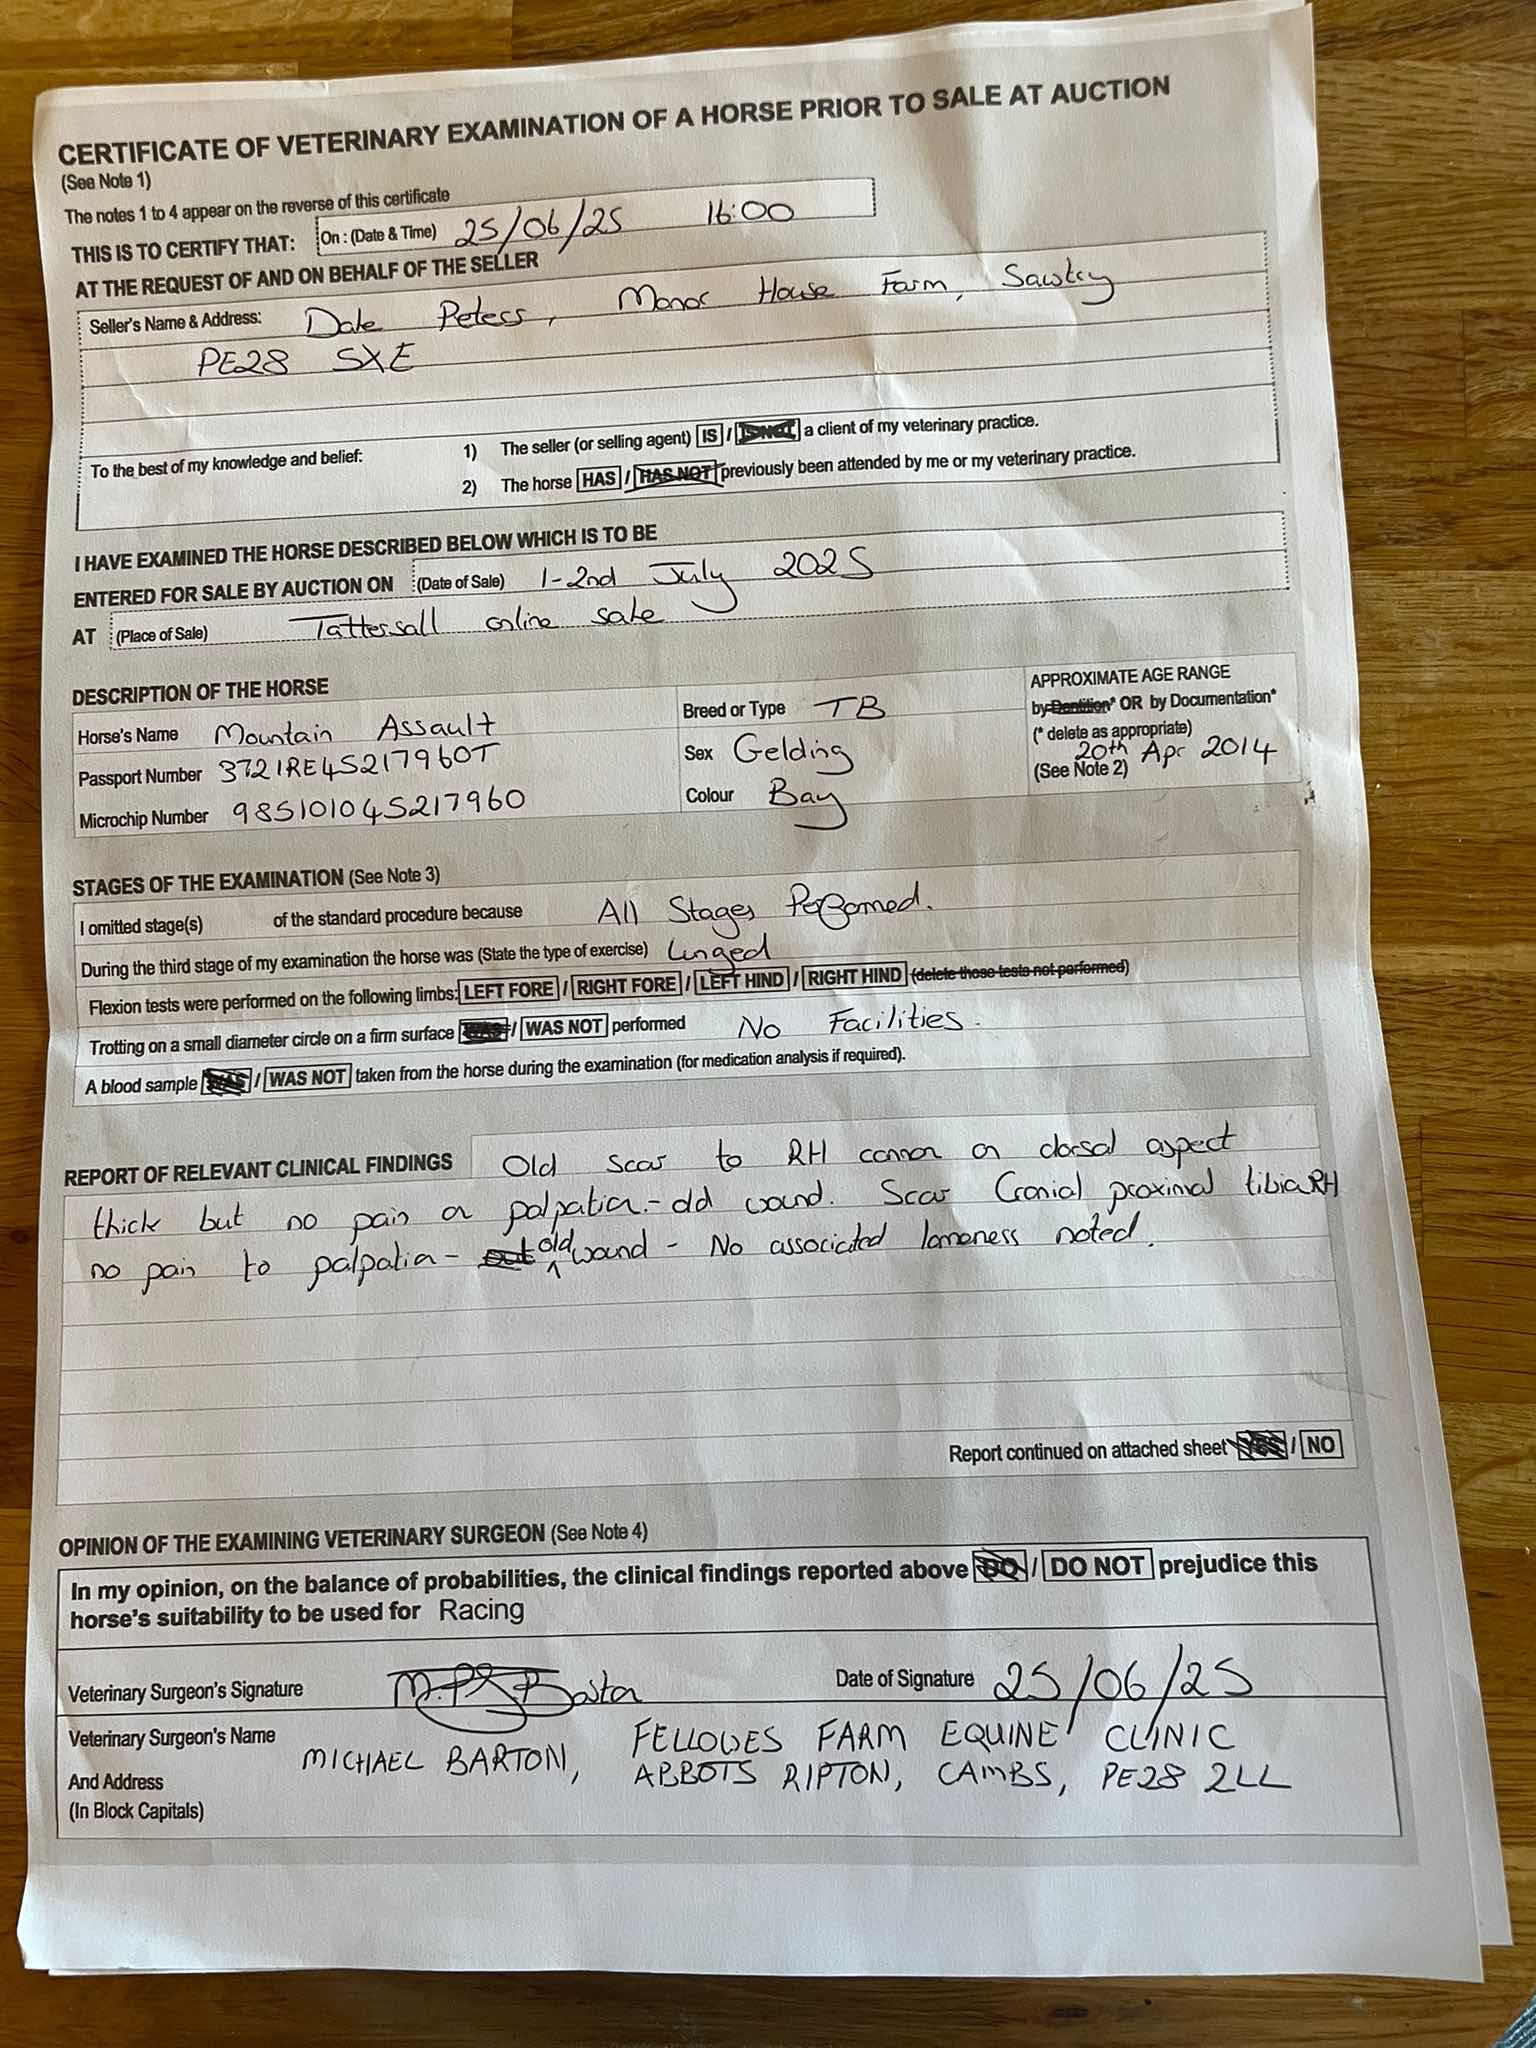 CERTIFICATE OF VETERINARY EXAMINATION OF A HORSE PRIOR TO SALE AT AUCTION
(See Note 1)
The notes 1 to 4 appear on the reverse of this certificate
THIS IS TO CERTIFY THAT: On : (Date & Time) 25/06/25 16:00
AT THE REQUEST OF AND ON BEHALF OF THE SELLER
Seller's Name & Address: Dale Peters, Manor House Farm, Sawtry
PE28 5XE
To the best of my knowledge and belief: 1) The seller (or selling agent) IS / IS NOT a client of my veterinary practice.
2) The horse HAS / HAS NOT previously been attended by me or my veterinary practice.
I HAVE EXAMINED THE HORSE DESCRIBED BELOW WHICH IS TO BE
ENTERED FOR SALE BY AUCTION ON (Date of Sale) 1-2nd July 2025
AT (Place of Sale) Tattersall online sale
DESCRIPTION OF THE HORSE
APPROXIMATE AGE RANGE
by Dentition* OR by Documentation*
(* delete as appropriate)
20th Apr 2014
(See Note 2)
Horse's Name Mountain Assault Breed or Type TB
Passport Number 372IRE45217960T Sex Gelding
Microchip Number 985101045217960 Colour Bay
STAGES OF THE EXAMINATION (See Note 3)
I omitted stage(s) of the standard procedure because All Stages Performed.
During the third stage of my examination the horse was (State the type of exercise) Lunged
Flexion tests were performed on the following limbs: LEFT FORE / RIGHT FORE / LEFT HIND / RIGHT HIND (delete those tests not performed)
Trotting on a small diameter circle on a firm surface WAS / WAS NOT performed No Facilities.
A blood sample WAS / WAS NOT taken from the horse during the examination (for medication analysis if required).
REPORT OF RELEVANT CLINICAL FINDINGS Old scar to RH cannon on dorsal aspect
thick but no pain on palpation - old wound. Scar Cranial proximal tibia RH
no pain to palpation - out old wound - No associated lameness noted.
Report continued on attached sheet YES / NO
OPINION OF THE EXAMINING VETERINARY SURGEON (See Note 4)
In my opinion, on the balance of probabilities, the clinical findings reported above DO / DO NOT prejudice this
horse's suitability to be used for Racing
Veterinary Surgeon's Signature Barton Date of Signature 25/06/25
Veterinary Surgeon's Name
And Address
(In Block Capitals)
MICHAEL BARTON, FELLOWES FARM EQUINE CLINIC
ABBOTS RIPTON, CAMBS, PE28 2LL